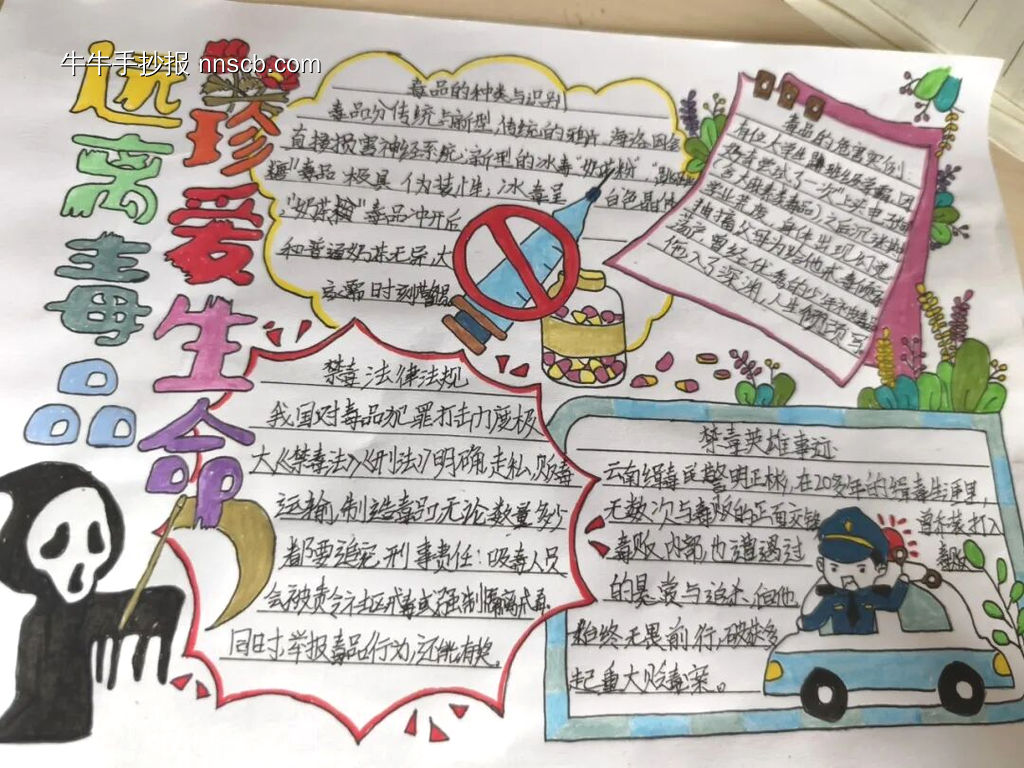 牛牛手抄报 nnscb.com
远离毒品
珍爱生命
毒品的种类与识别
毒品分传统与新型,传统的鸦片、海洛因会
直接损害神经系统;新型的冰毒"奶茶粉""跳跳
糖"毒品极具伪装性,冰毒呈白色晶体
,"奶茶粉"毒品冲开后
和普通奶茶无异,大
家需时刻
毒品的危害实例
有位大学生
好奇尝试了一次"上头电子烟
(含大麻素毒品),之后沉迷
学业荒废,身体出现幻觉
父母为给他戒毒
荡产,曾经优秀的少年
禁毒法律法规
我国对毒品犯罪打击力度极
大《禁毒法》《刑法》明确,走私、贩毒
运输、制造毒品,无论数量多少
都要追究刑事责任:吸毒人员
会被责令社区戒毒或强制隔离戒毒
同时,举报毒品行为,还能有奖。
禁毒英雄事迹
云南缉毒民警明正彬,在20多年的缉毒生涯里,
无数次与毒贩的正面交锋 曾乔装打入
毒贩内部也遭遇过 毒贩
的悬赏与追杀,但他
始终无畏前行,破获多
起重大贩毒案。